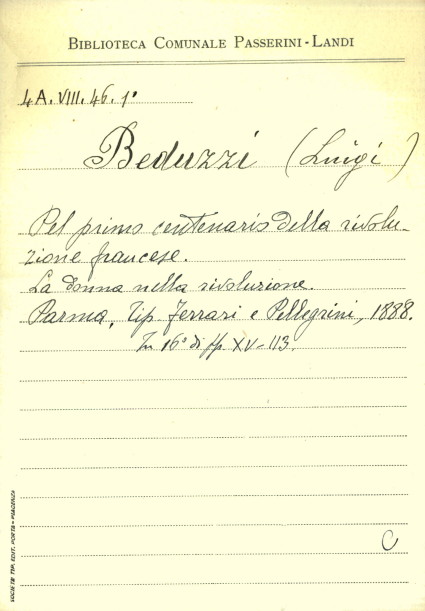 BIBLIOTECA COMUNALE PASSERINI-LANDI
4A. VIII. 46. 1°
Beduzzi (Luigi)
Pel primo centenario della rivolu-
zione francese.
La donna nella rivoluzione.
Parma, Tip. Ferrari e Pellegrini, 1888.
In 16° di pp. XV-113.
C
SOCIETÀ TIP. EDIT. PORTA - PIACENZA